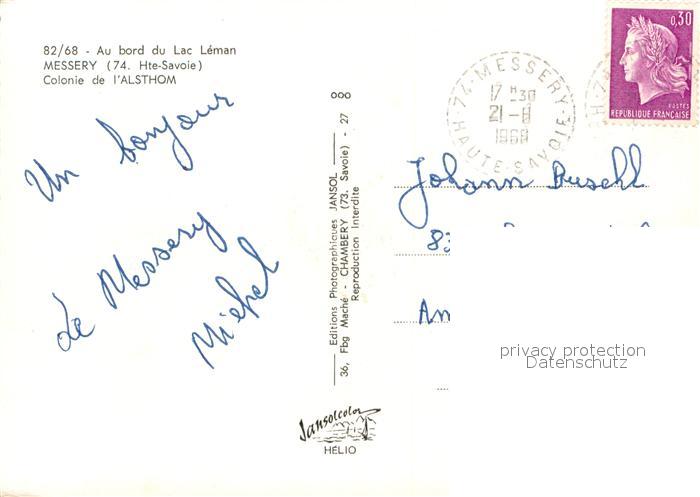 82/68 - Au bord du Lac Léman
MESSERY (74. Hte-Savoie)
Colonie de l'ALSTHOM
Un bonjour
de Messery
Michel
OOO
Editions Photographiques JANSOL
36, Fbg Maché - CHAMBERY (73. Savoie) - 27
Reproduction Interdite
Jansolcolor
HÉLIO
74-MESSERY
17 H 30
21-8
1968
HAUTE-SAVOIE
0,30
POSTES
REPUBLIQUE FRANÇAISE
Johann
83
An
privacy protection
Datenschutz